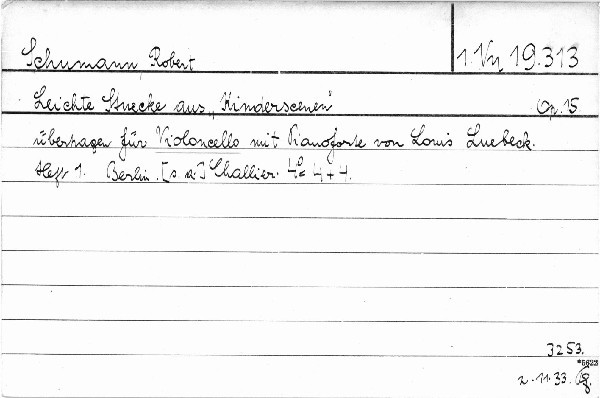 Schumann, Robert
1. Vn 19.313
Leichte Stuecke aus „Kinderscenen" Op. 15
übertragen für Violoncello mit Pianoforte von Louis Luebeck.
Heft 1. Berlin. [s. a.] Challier. 4º 4 + 4.
3253.
*6622
2. 11. 33.